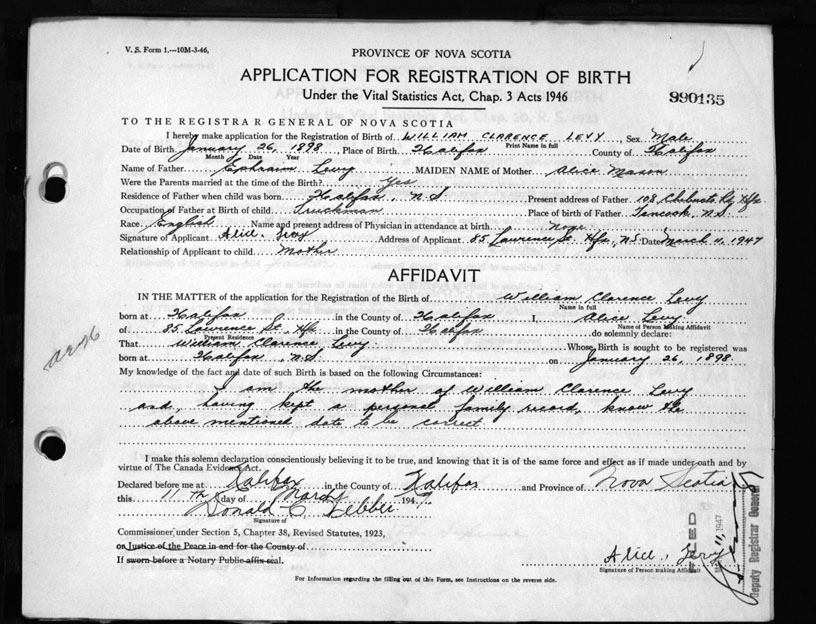 V. S. Form 1.—10M-3-46.
PROVINCE OF NOVA SCOTIA
APPLICATION FOR REGISTRATION OF BIRTH
Under the Vital Statistics Act, Chap. 3 Acts 1946
990135
TO THE REGISTRAR GENERAL OF NOVA SCOTIA
I hereby make application for the Registration of Birth of WILLIAM CLARENCE LEVY, Sex Male
Print Name in full
Date of Birth January 26, 1898 Place of Birth Halifax County of Halifax
Month Date Year
Name of Father Ephraim Levy MAIDEN NAME of Mother Alice Mason
Were the Parents married at the time of the Birth? Yes
Residence of Father when child was born Halifax, N.S Present address of Father 108 Chebucto Rd Hfx
Occupation of Father at Birth of child Truckman Place of Birth of Father Tancook, N.S.
Race English Name and present address of Physician in attendance at birth None
Signature of Applicant Alice Levy Address of Applicant 85 Lawrence St. Hfx, N.S Date March 11, 1947
Relationship of Applicant to child Mother
AFFIDAVIT
IN THE MATTER of the application for the Registration of the Birth of William Clarence Levy
Name in full
born at Halifax in the County of Halifax I, Alice Levy
Name of Person Making Affidavit
of 85 Lawrence St., Hfx in the County of Halifax do solemnly declare:
Present Residence
That William Clarence Levy Whose Birth is sought to be registered was
born at Halifax, N.S. on January 26, 1898.
My knowledge of the fact and date of such Birth is based on the following Circumstances:
I am the mother of William Clarence Levy
and, having kept a personal family record, know the
above mentioned date to be correct
I make this solemn declaration conscientiously believing it to be true, and knowing that it is of the same force and effect as if made under oath and by
virtue of The Canada Evidence Act.
Declared before me at Halifax in the County of Halifax and Province of Nova Scotia
this 11th day of March 1947
Donald C
Signature of
Commissioner under Section 5, Chapter 38, Revised Statutes, 1923,
or Justice of the Peace in and for the County of
If sworn before a Notary Public affix seal.
Alice Levy
Signature of Person making Affidavit
FILED
MAR 11, 1947
Deputy Registrar General
For Information regarding the filling out of this Form, see Instructions on the reverse side.